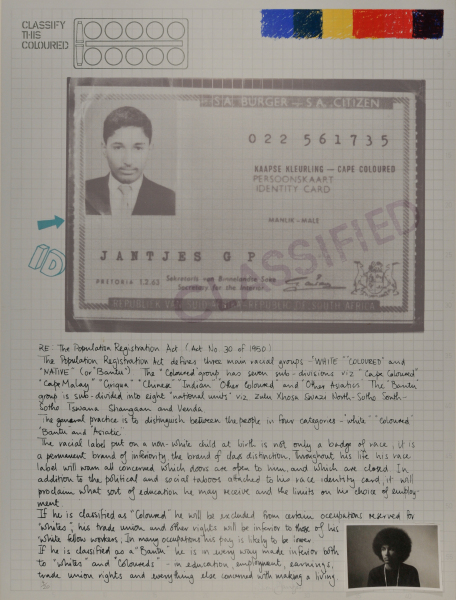 CLASSIFY
THIS
COLOURED
S.A. BURGER – S.A. CITIZEN
022 561735
KAAPSE KLEURLING — CAPE COLOURED
PERSOONSKAART
IDENTITY CARD
MANLIK-MALE
CLASSIFIED
iD
JANTJES G P
PRETORIA 1.2.63
Secretary for the Interior
RE: The Population Registration Act (Act No. 30 of 1950)
The Population Registration Act defines three main racial groups - "WHITE" "COLOURED" and
"NATIVE" (or "Bantu") The "Coloured" group has seven sub-divisions viz "Cape Coloured"
"Cape Malay" "Griqua" "Chinese" "Indian" "Other Coloured" and "Other Asiatics" The "Bantu"
group is sub-divided into eight "national units" viz Zulu Xhosa Swazi North-Sotho South-
Sotho Tswana Shangaan and Venda.
The general practice is to distinguish between the people in four categories - "white" "coloured"
"Bantu" and Asiatic.
The racial label put on a non-white child at birth is not only a badge of race, it is
a permanent brand of inferiority, the brand of class distinction. Throughout his life his race
label will warn all concerned which doors are open to him, and which are closed. In
addition to the political and social taboos attached to his race identity card, it will
proclaim what sort of education he may receive and the limits on his choice of employ-
ment.
If he is classified as "Coloured" he will be excluded from certain occupations reserved for
"whites"; his trade union and other rights will be inferior to those of his
white fellow workers. In many occupations his pay is likely to be lower
If he is classified as a "Bantu" he is in every way made inferior both
to "whites" and "coloureds" - in education, employment, earnings,
trade union rights and everything else concerned with making a living